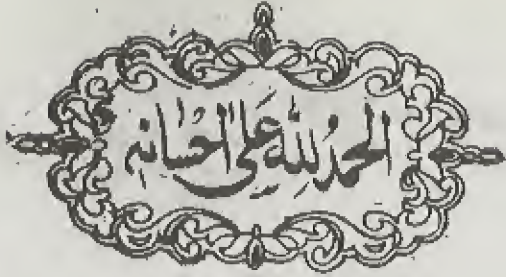 الحمد لله على احسانه